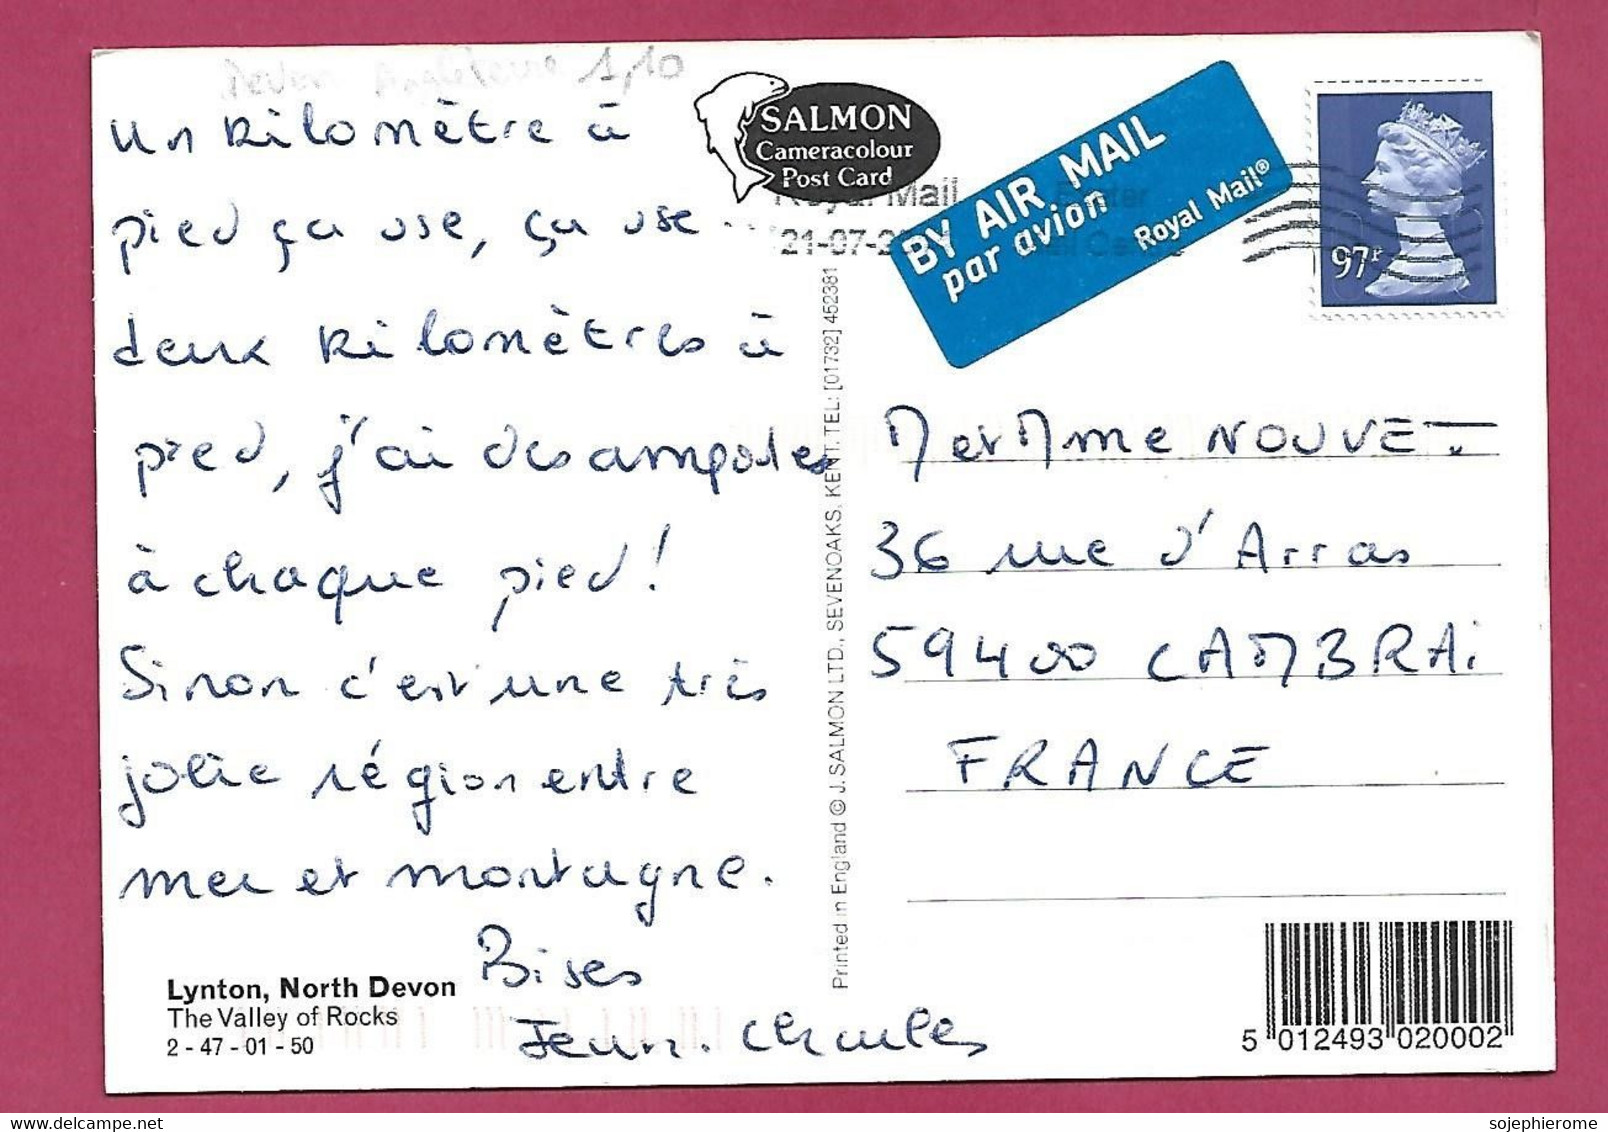 Devon Angleterre 1,10
un kilomètre à
pied ça use, ça use...
deux kilomètres à
pied, j'ai des ampoules
à chaque pied!
Sinon c'est une très
jolie région entre
mer et montagne.
Bises
Jean-Charles
Lynton, North Devon
The Valley of Rocks
2 - 47 - 01 - 50
SALMON
Cameracolour
Post Card
Royal Mail
21-07-2
Exeter
Mail Centre
BY AIR MAIL
par avion
Royal Mail®
97P
Printed in England © J. SALMON LTD., SEVENOAKS, KENT. TEL: [01732] 452381
M et Mme NOUVET.
36 rue d'Arras
59400 CAMBRAi
FRANCE
5 012493 020002
sojephierome